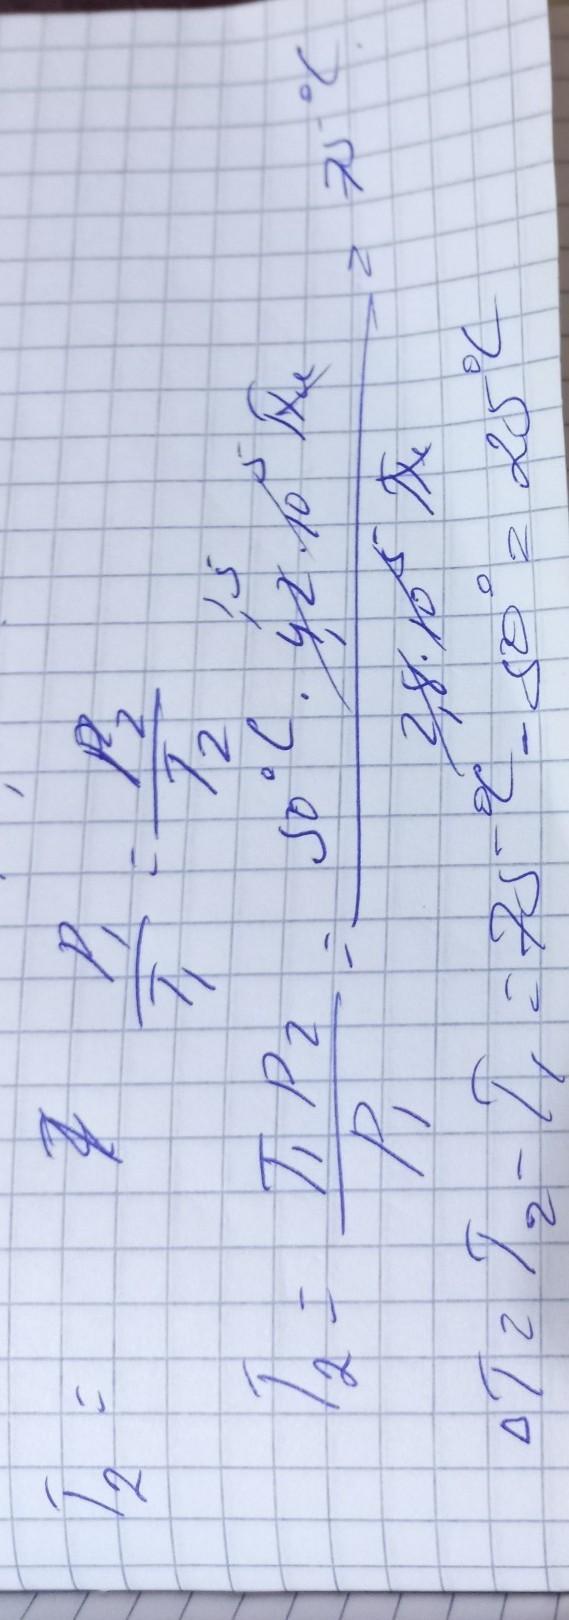 T₂ =
P₁/T₁ = P₂/T₂
T₂ = T₁P₂/P₁ = 50°C · 4,2·10⁵ Па 1,5 / 2,8·10⁵ Па = 75°C
ΔT = T₂ - T₁ = 75°C - 50° = 25°C